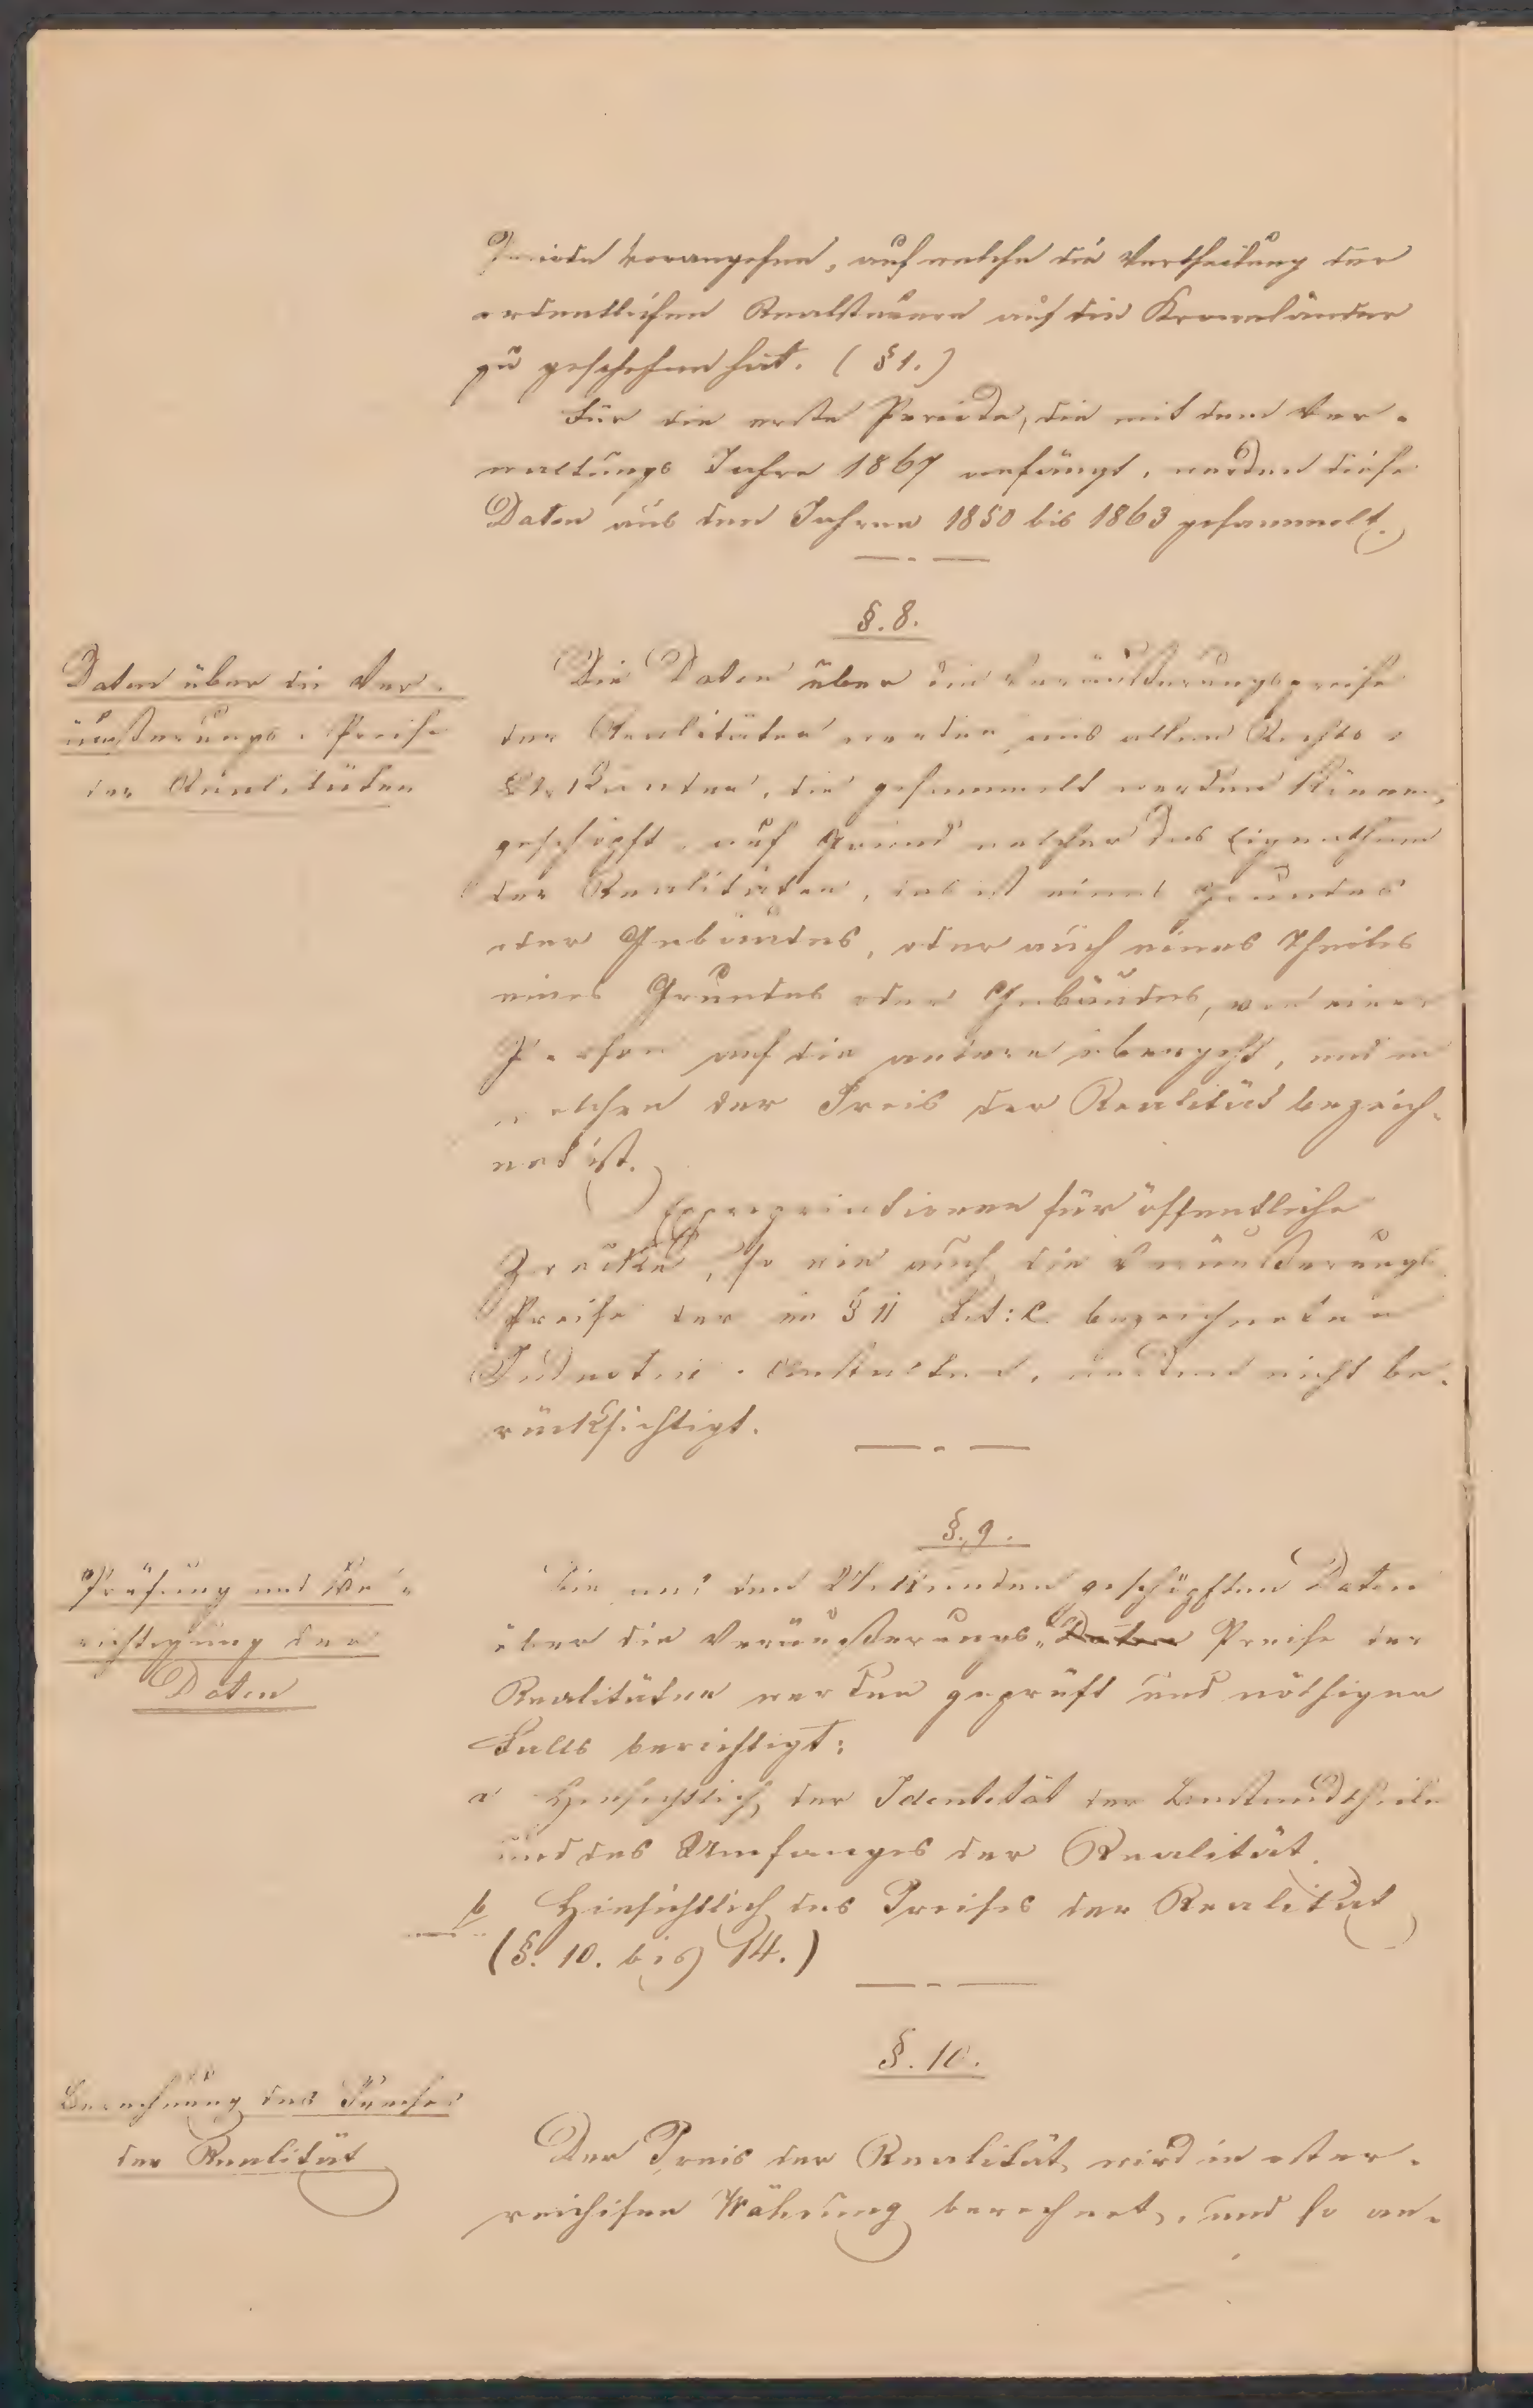 Periode vorangehen, auf welche die Vertheilung der
ordentlichen Realsteuern auf die Kronländer
zu geschehen hat. (§ 1.)
Für die erste Periode, die mit dem Ver-
waltungs Jahre 1867 anfängt, werden diese
Daten aus den Jahren 1850 bis 1863 gesammelt.
§. 8.
Daten über die Ver-
äußerungs-Preise
der Realitäten
Die Daten über die Veräußerungspreise
der Realitäten werden aus allen Rechts-
Urkunden, die gesammelt werden können,
geschöpft, auf Grund welcher das Eigenthum
der Realitäten, das ist eines Grundes
oder Gebäudes, oder auch eines Theiles
eines Grundes oder Gebäudes, von einer
Person auf die andere übergeht, und in
welchen der Preis der Realität bezeich-
net ist.
Expropriationen für öffentliche
Zwecke, so wie auch die Veräußerungs
Preise der im § 11 Lit: c. bezeichneten
Industrie-Anstalten, werden nicht be-
rücksichtigt.
§. 9.
Prüfung und Be-
richtigung der
Daten
Die aus den Urkunden geschöpften Daten
über die Veräußerungs-Daten Preise der
Realitäten werden geprüft und nöthigen
Falls berichtigt:
a Hinsichtlich der Identität der Bestandtheile
und des Umfanges der Realität.
b Hinsichtlich des Preises der Realität
(§. 10. bis 14.)
§. 10.
Berechnung des Preises
der Realität
Der Preis der Realität wird in öster-
reichischen Währung berechnet, und so an-